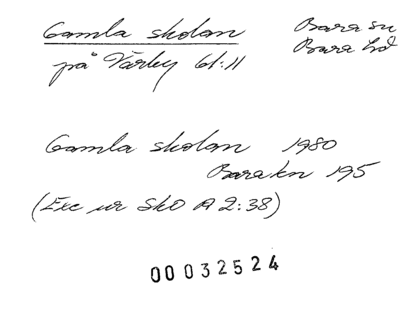 Gamla skolan Bara sn
på Värby 61:11 Bara hd
Gamla skolan 1980
Bara kn 195
(Exc ur SkO A 2:38)
00032524